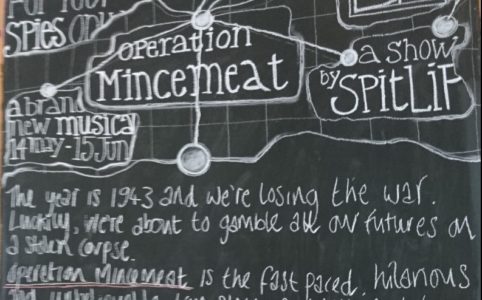 For Your
Spies Only
Operation
Mincemeat
a show
by SpitLip
a brand
new musical
14 may - 15 Jun
The year is 1943 and we're losing the war.
Luckily, we're about to gamble all our futures on
a stolen corpse.
Operation Mincemeat is the fast paced, hilarious